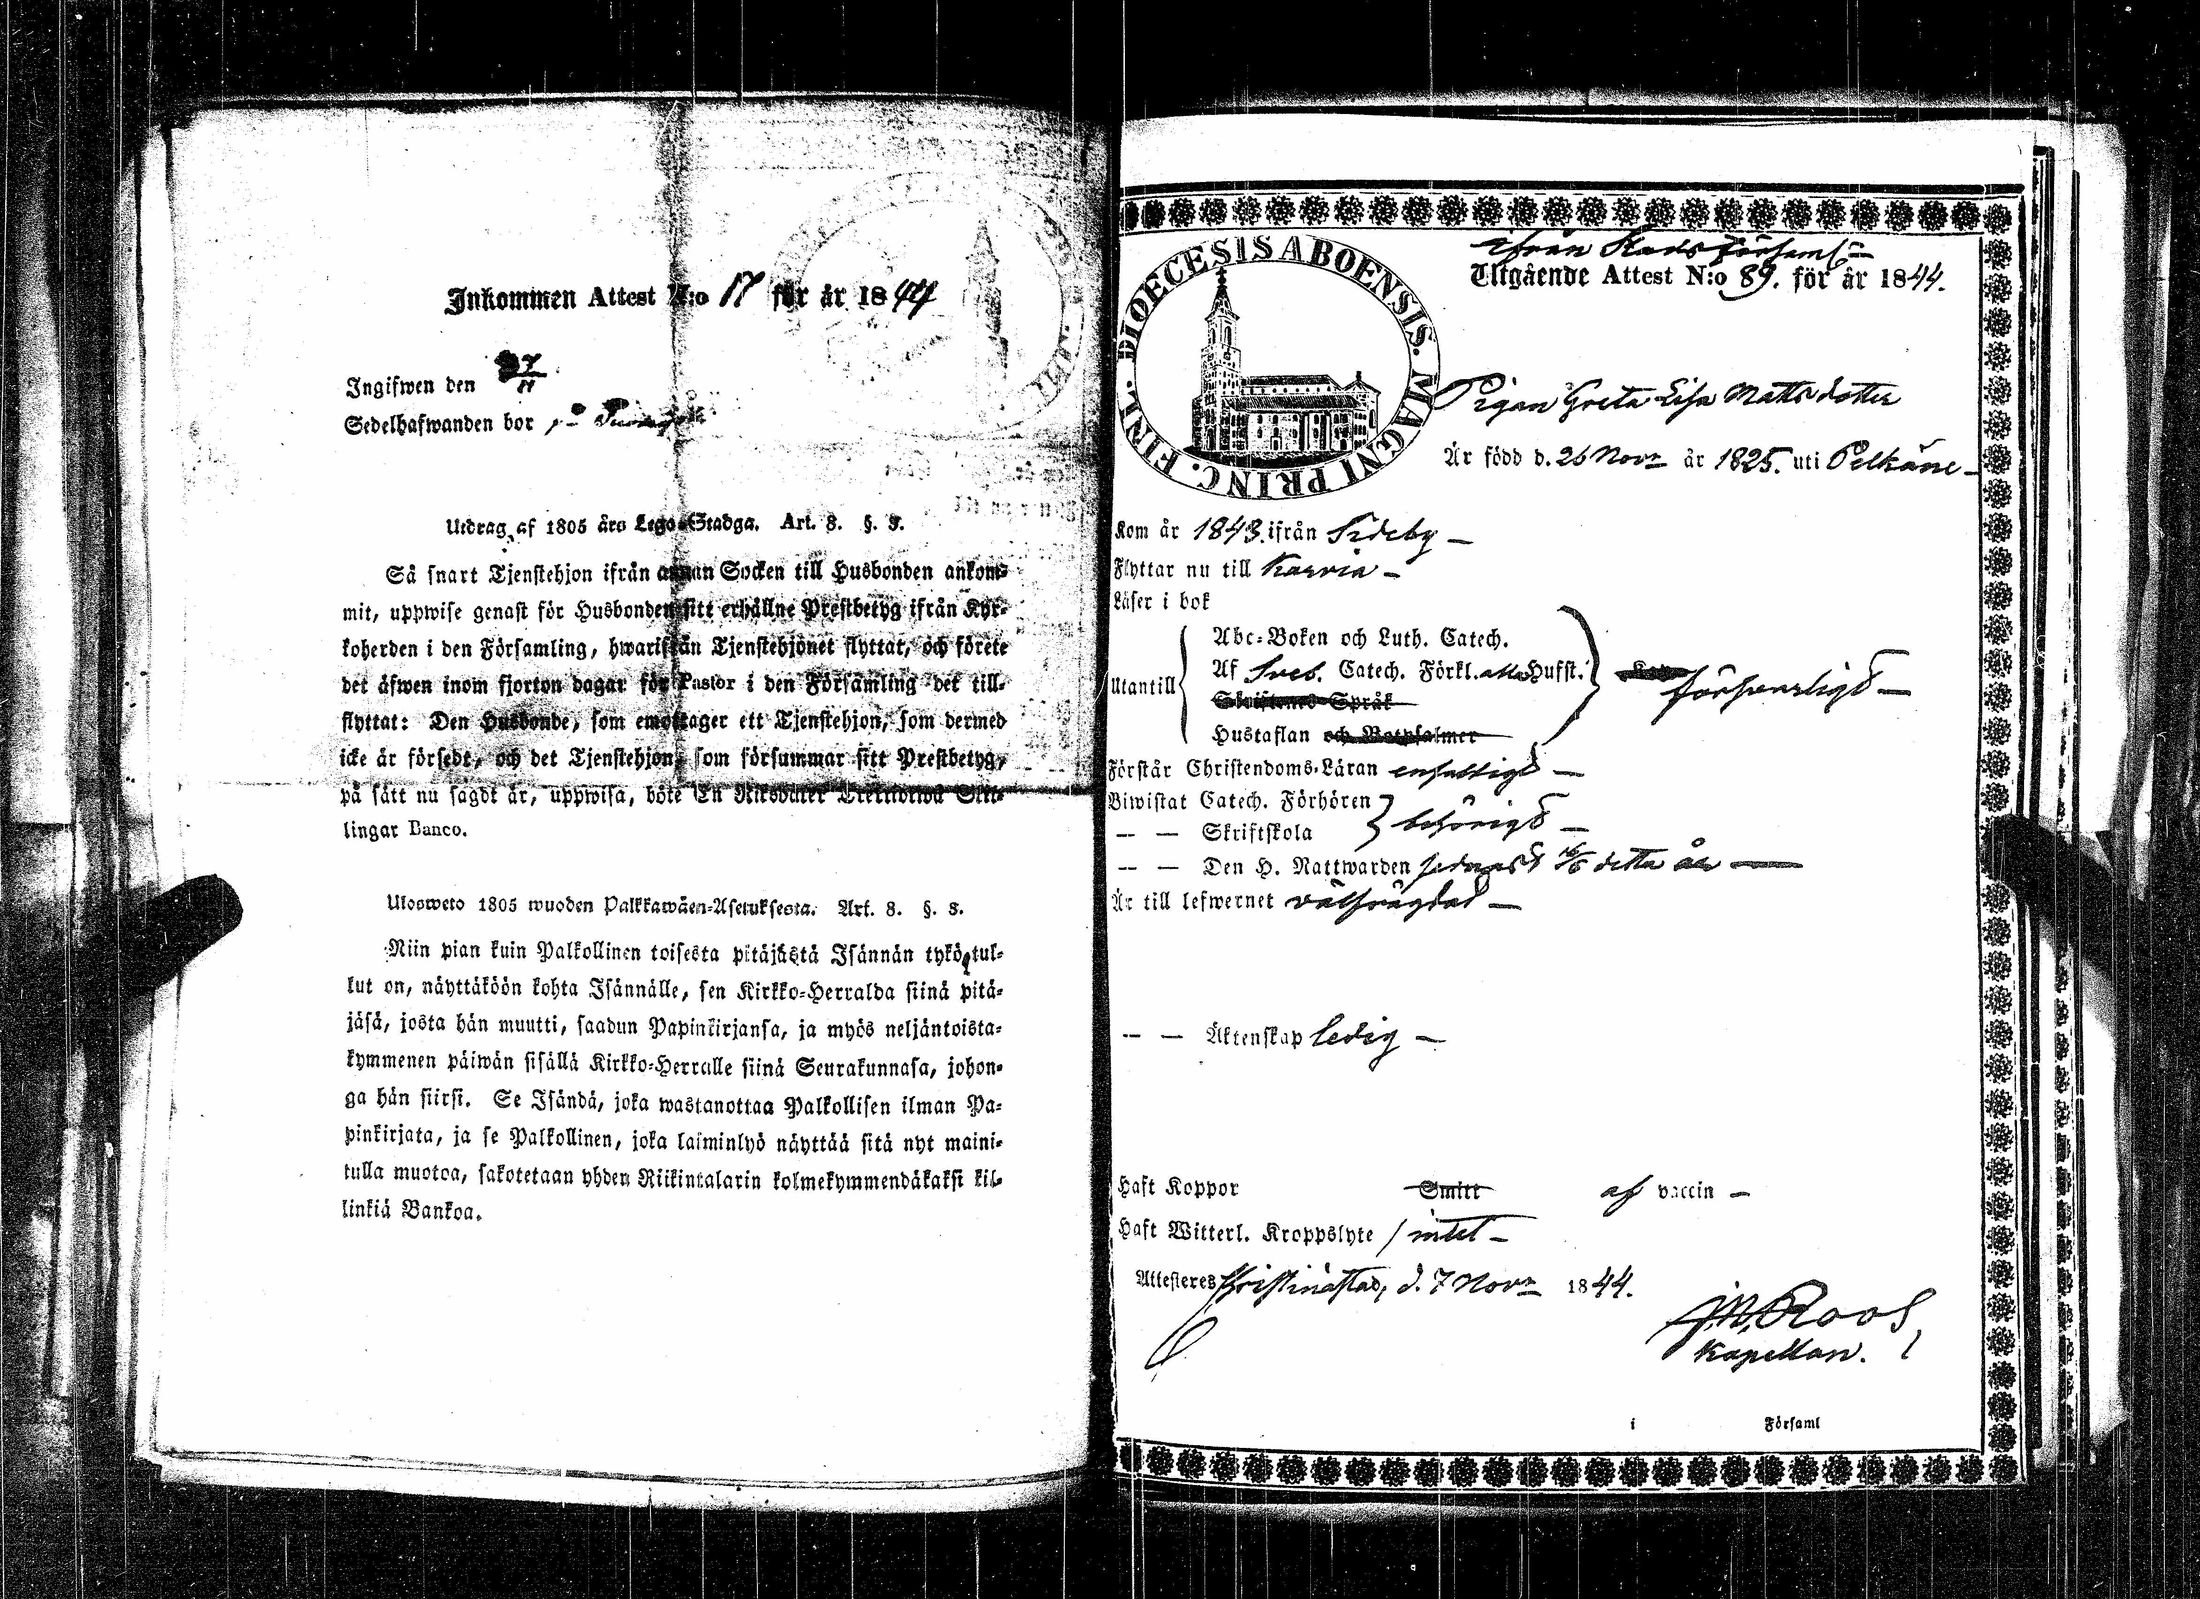 Inkommen Attest N:o 17 för år 1844
Ingifwen den 27/11
Sedelhafwanden bor på
Utdrag af 1805 års Lego-Stadga. Art. 8. §. 8.
Så snart Tjenstehjon ifrån annan Socken till Husbonden ankom-
mit, uppwise genast för Husbonden sitt erhållne Prestbetyg ifrån Kyr-
koherden i den Församling, hwarifrån Tjenstehjonet flyttat, och förete
det äfwen inom fjorton dagar för Pastor i den Församling det till-
flyttat: Den Husbonde, som emottager ett Tjenstehjon, som dermed
icke är försedt, och det Tjenstehjon, som försummar sitt Prestbetyg,
på sätt nu sagdt är, uppwisa, böte En Riksdaler Trettiotwå Skil-
lingar Banco.
Ulosweto 1805 wuoden Palkkawäen-Asetuksesta. Art. 8. §. 8.
Niin pian kuin Palkollinen toisesta pitäjästä Isännän tykö tul-
lut on, näyttäköön kohta Isännälle, sen Kirkko-Herralda siinä pitä-
jäsä, josta hän muutti, saadun Papinkirjansa, ja myös neljäntoista-
kymmenen päiwän sisällä Kirkko-Herralle siinä Seurakunnasa, johon-
ga hän siirsi. Se Isändä, joka wastanottaa Palkollisen ilman Pa-
pinkirjata, ja se Palkollinen, joka laiminlyö näyttää sitä nyt maini-
tulla muotoa, sakotetaan yhden Riikintalarin kolmekymmendäkaksi kil-
linkiä Bankoa.
DIOECESIS ABOENSIS. MAGNI PRINC. FINL.
ifrån Stads Församl:n
Utgående Attest N:o 89. för år 1844.
Pigan Greta Lisa Mattsdotter
Är född d. 26 Novr år 1825. uti Pelkäne –
Kom år 1843. ifrån Sideby –
Flyttar nu till Karvia –
Läser i bok
Utantill
Abc-Boken och Luth. Catech.
Af Sveb. Catech. Förkl. alla Hufst.
Skriftenes Språk
Hustaflan och Botpsalmer
försvarligt –
Förstår Christendoms-Läran enfaldigt –
Biwistat Catech. Förhören
– – Skriftskola
behörigt –
– – Den H. Nattwarden sednast 16/6 detta år –
Är till lefwernet välfrägdad –
– – Äktenskap ledig –
Haft Koppor Smitt af vaccin –
Haft Witterl. Kroppslyte / intet –
Attesteres Christinæstad, d. 7 Novr 1844.
J.M. Roos
Kapellan.
i Församl